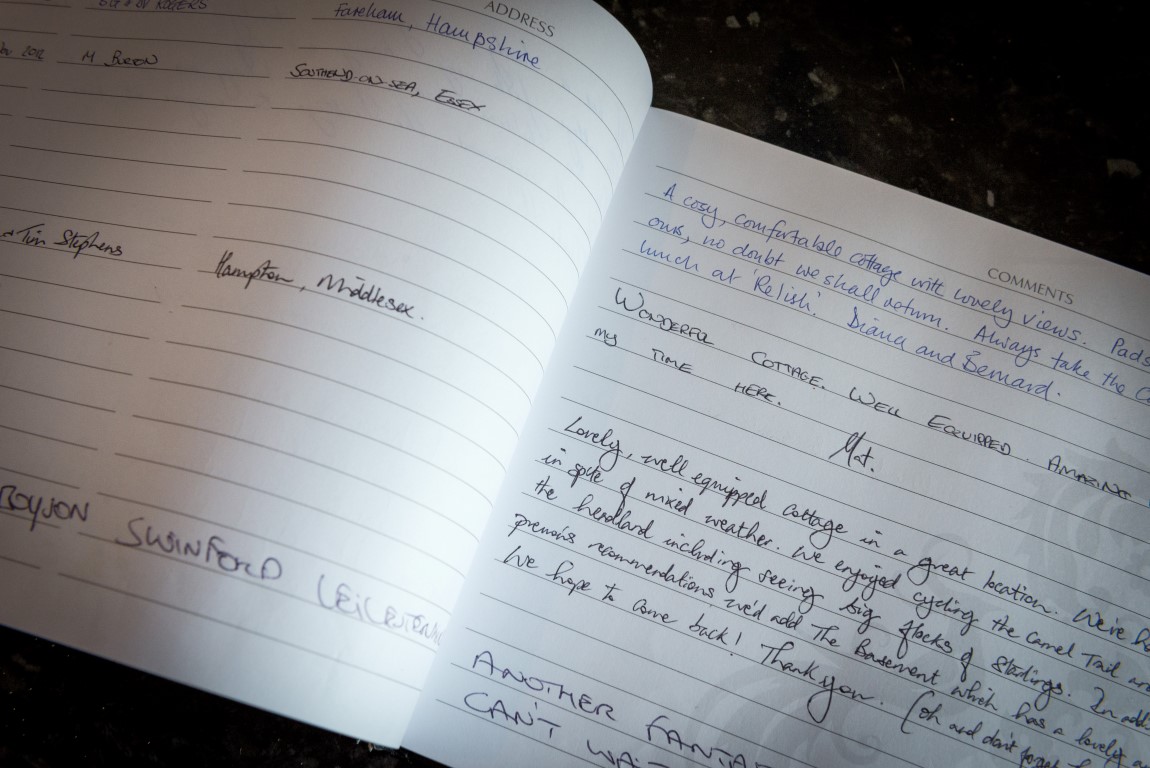 ADDRESS
ROGERS Fareham, Hampshire
2012 M BURON SOUTHEND-ON-SEA, ESSEX
Tim Stephens Hampton, Middlesex.
SWINFORD
COMMENTS
A cosy, comfortable cottage with lovely views. Pads
ours, no doubt we shall return. Always take the
lunch at 'Relish'. Diana and Bernard.
WONDERFUL COTTAGE. WELL EQUIPPED. AMAZING
MY TIME HERE.
Lovely, well equipped cottage in a great location. We've
in spite of mixed weather. We enjoyed cycling the Camel Tail
the headland including seeing big flocks of starlings. In
previous recommendations we'd add The Basement which has a lovely
We hope to come back! Thank you. (oh and don't forget
ANOTHER
CAN'T